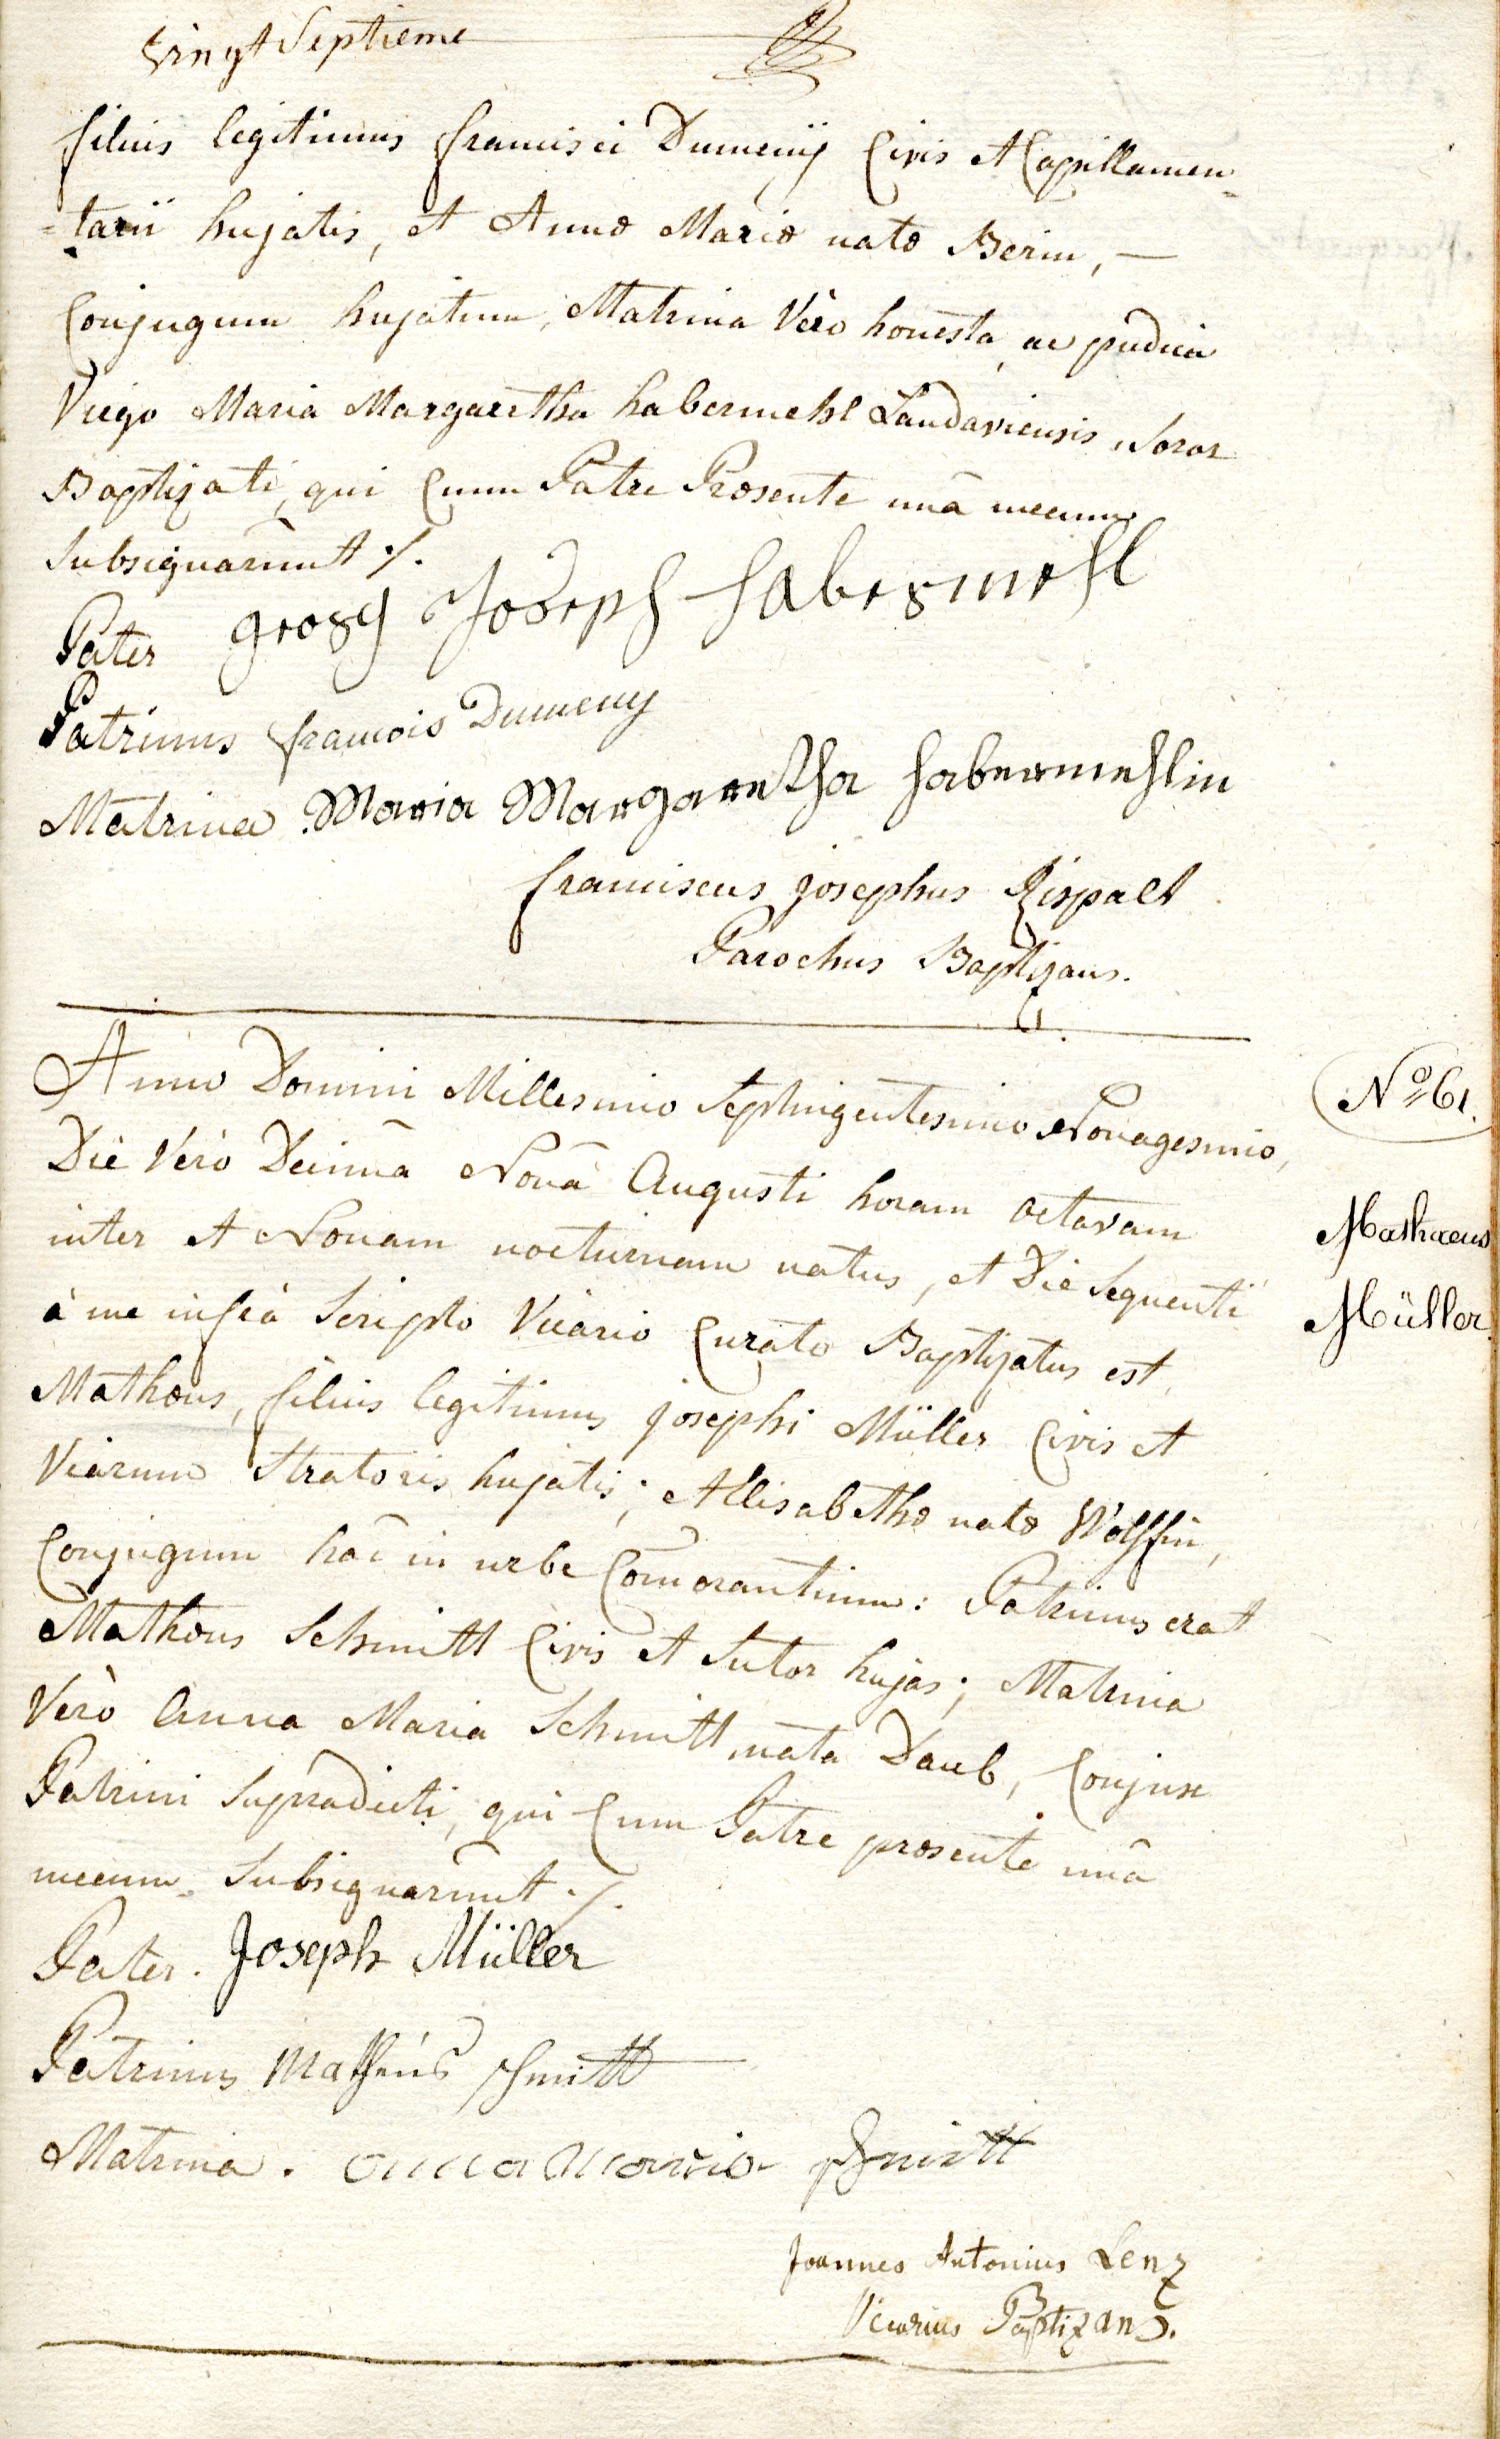 vingt Septieme
filius legitimus francisci Dumenij Civis et Capillamen=
=tarii hujatis, et Annæ Mariæ natæ Berin, —
Conjugum hujatum, Matrina Vèro honesta, ac pudica
Virgo Maria Margaretha habermehl Landaviensis, Soror
Baptizati, qui Cum Patre Præsente unâ mecum
Subsignarunt ./.
Pater georg Joseph habermehl
Patrinus francois Dumeny
Matrina Maria Margaretha habermehlin
franciscus josephus Rispalt
Parochus Baptizans.
Anno Domini Millesimo Septingentesimo Nonagesimo,
Nº 61.
Die Vèro Decimâ Nonâ Augusti horam octavam
inter et Nonam nocturnam natus, et Die Sequenti
Mathaeus
à me infrà Scripto Vicario Curato Baptizatus est,
Müller
Mathæus, filius legitimus josephi Müller Civis et
Viarum Stratoris hujatis; et Elisabethæ natæ Wolffin,
Conjugum hâc in urbe Com̄orantium: Patrinus erat
Mathæus Schmitt Civis et Sutor hujas; Matrina
Vèrò Anna Maria Schmitt, nata Daub, Conjux
Patrini Supradicti, qui Cum Patre præsente unâ
mecum Subsignarunt ./.
Pater. Joseph Müller
Patrinus Matheus Schmitt
Matrina. anna Maria Schmitt
Joannes Antonius Lenz
Vicarius Baptizans.